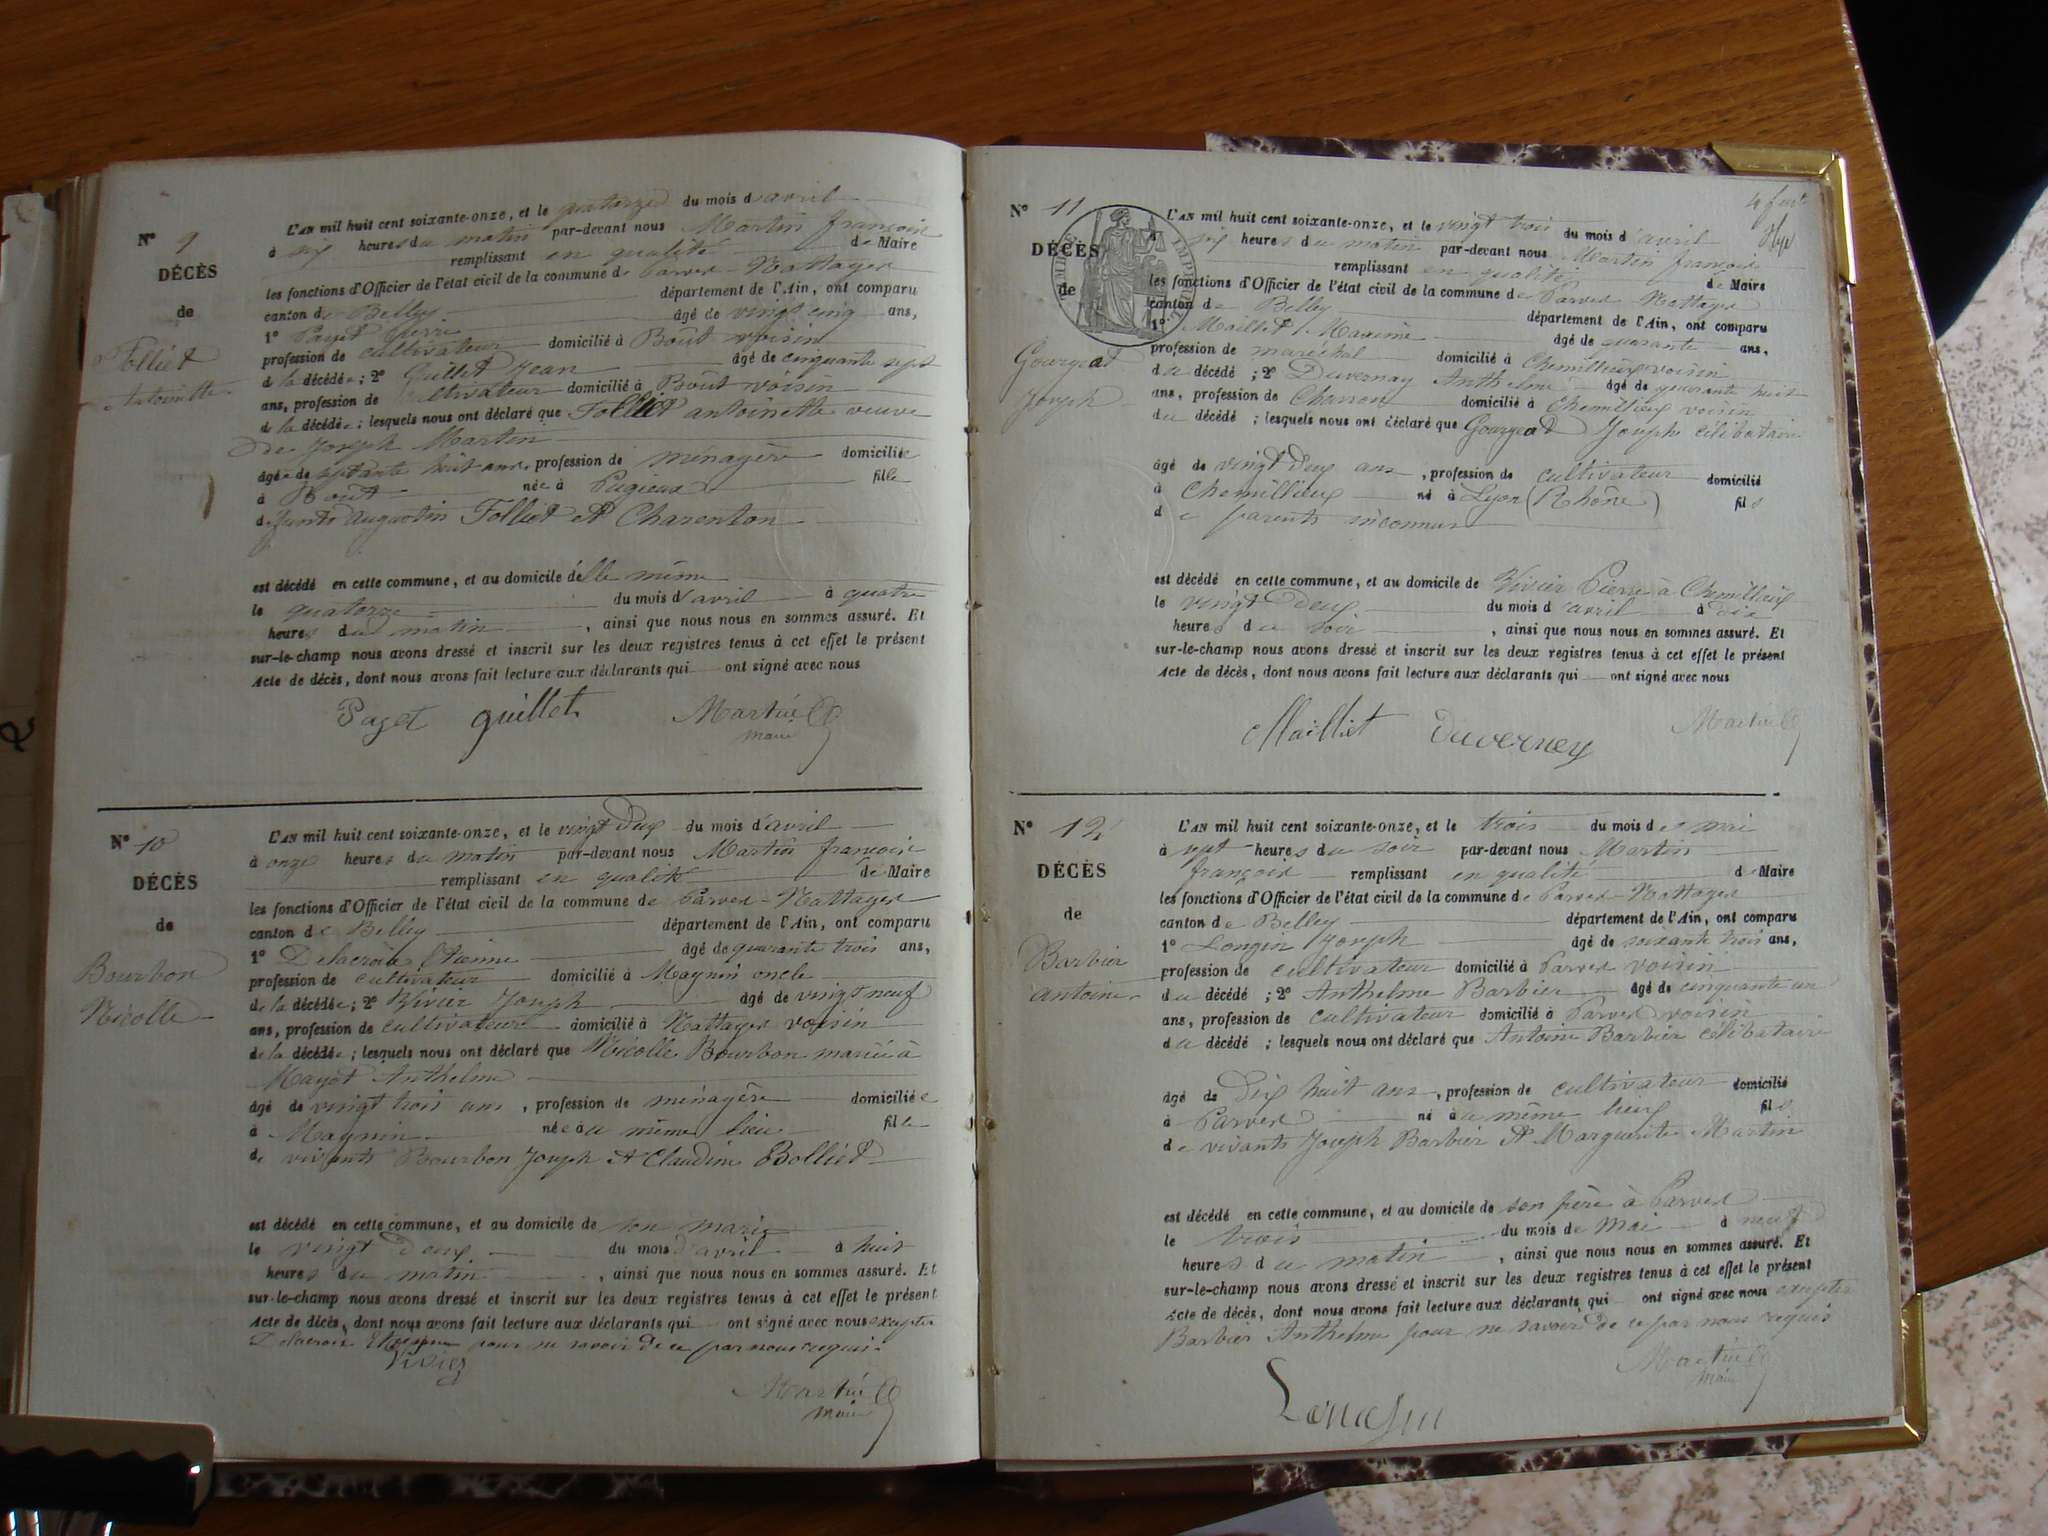 N° 9
DÉCÈS
de
Folliet
Antoinette
L'AN mil huit cent soixante-onze, et le quatorze du mois d'avril
à six heures du matin par-devant nous Martin françois
remplissant en qualité de Maire
les fonctions d'Officier de l'état civil de la commune de Parves-Nattages
canton de Belley département de l'Ain, ont comparu
1° Paget Pierre âgé de vingt cinq ans,
profession de cultivateur domicilié à Boût voisin
de la décédée; 2° Guillet Jean âgé de cinquante sept
ans, profession de cultivateur domicilié à Boût voisin
de la décédée; lesquels nous ont déclaré que Folliet antoinette veuve
de Joseph Martin
âgée de septante huit ans, profession de ménagère domiciliée
à Boût née à Pugieux fille
défunts augustin Folliet et Charenton
est décédé en cette commune, et au domicile d'elle même
le quatorze du mois d'avril à quatre
heures du matin, ainsi que nous nous en sommes assuré. Et
sur-le-champ nous avons dressé et inscrit sur les deux registres tenus à cet effet le présent
Acte de décès, dont nous avons fait lecture aux déclarants qui ont signé avec nous
Paget guillet Martin
maire
N° 10
DÉCÈS
de
Bourbon
Nicolle
L'AN mil huit cent soixante-onze, et le vingt deux du mois d'avril
à onze heures du matin par-devant nous Martin françois
remplissant en qualité de Maire
les fonctions d'Officier de l'état civil de la commune de Parves-Nattages
canton de Belley département de l'Ain, ont comparu
1° Delacroix Etienne âgé de quarante trois ans,
profession de cultivateur domicilié à Maynin oncle
de la décédée; 2° Vivier Joseph âgé de vingt neuf
ans, profession de cultivateur domicilié à Nattages voisin
de la décédée; lesquels nous ont déclaré que Nicolle Bourbon mariée à
Mayot Anthelme
âgé de vingt trois ans, profession de ménagère domiciliée
à Maynin née au même lieu fille
de vivants Bourbon Joseph et Claudine Bolliet
est décédé en cette commune, et au domicile de son mari
le vingt deux du mois d'avril à huit
heures du matin, ainsi que nous nous en sommes assuré. Et
sur-le-champ nous avons dressé et inscrit sur les deux registres tenus à cet effet le présent
Acte de décès, dont nous avons fait lecture aux déclarants qui ont signé avec nous excepter
Delacroix Etienne pour ne savoir de ce par nous requis.
Vivier
Martin
maire
N° 11
DÉCÈS
de
Gourgeat
Joseph
L'AN mil huit cent soixante-onze, et le vingt trois du mois d'avril
à six heures du matin par-devant nous Martin françois
remplissant en qualité de Maire
les fonctions d'Officier de l'état civil de la commune de Parves Nattages
canton de Belley département de l'Ain, ont comparu
1° Maillet Maxime âgé de quarante ans,
profession de maréchal domicilié à Chemillieux voisin
du décédé; 2° Duvernay Anthelme âgé de quarante huit
ans, profession de Charron domicilié à Chemillieux voisin
du décédé; lesquels nous ont déclaré que Gourgeat Joseph célibataire
âgé de vingt deux ans, profession de cultivateur domicilié
à Chemillieux né à Lyon (Rhône) fils
de parents inconnus
est décédé en cette commune, et au domicile de Vivier Pierre à Chemillieux
le vingt deux du mois d'avril à dix
heures du soir, ainsi que nous nous en sommes assuré. Et
sur-le-champ nous avons dressé et inscrit sur les deux registres tenus à cet effet le présent
Acte de décès, dont nous avons fait lecture aux déclarants qui ont signé avec nous
Mailliet Duverney Martin
N° 12
DÉCÈS
de
Barbier
antoine
L'AN mil huit cent soixante-onze, et le trois du mois de mai
à sept heures du soir par-devant nous Martin
françois remplissant en qualité de Maire
les fonctions d'Officier de l'état civil de la commune de Parves-Nattages
canton de Belley département de l'Ain, ont comparu
1° Longin Joseph âgé de soixante trois ans,
profession de cultivateur domicilié à Parves voisin
du décédé; 2° Anthelme Barbier âgé de cinquante un
ans, profession de cultivateur domicilié à Parves voisin
du décédé; lesquels nous ont déclaré que Antoine Barbier célibataire
âgé de Dix huit ans, profession de cultivateur domicilié
à Parves né au même lieu fils
de vivants Joseph Barbier et Marguerite Martin
est décédé en cette commune, et au domicile de son père à Parves
le trois du mois de Mai à neuf
heures du matin, ainsi que nous nous en sommes assuré. Et
sur-le-champ nous avons dressé et inscrit sur les deux registres tenus à cet effet le présent
Acte de décès, dont nous avons fait lecture aux déclarants qui ont signé avec nous excepter
Barbier Anthelme pour ne savoir de ce par nous requis
Martin
maire
Longin